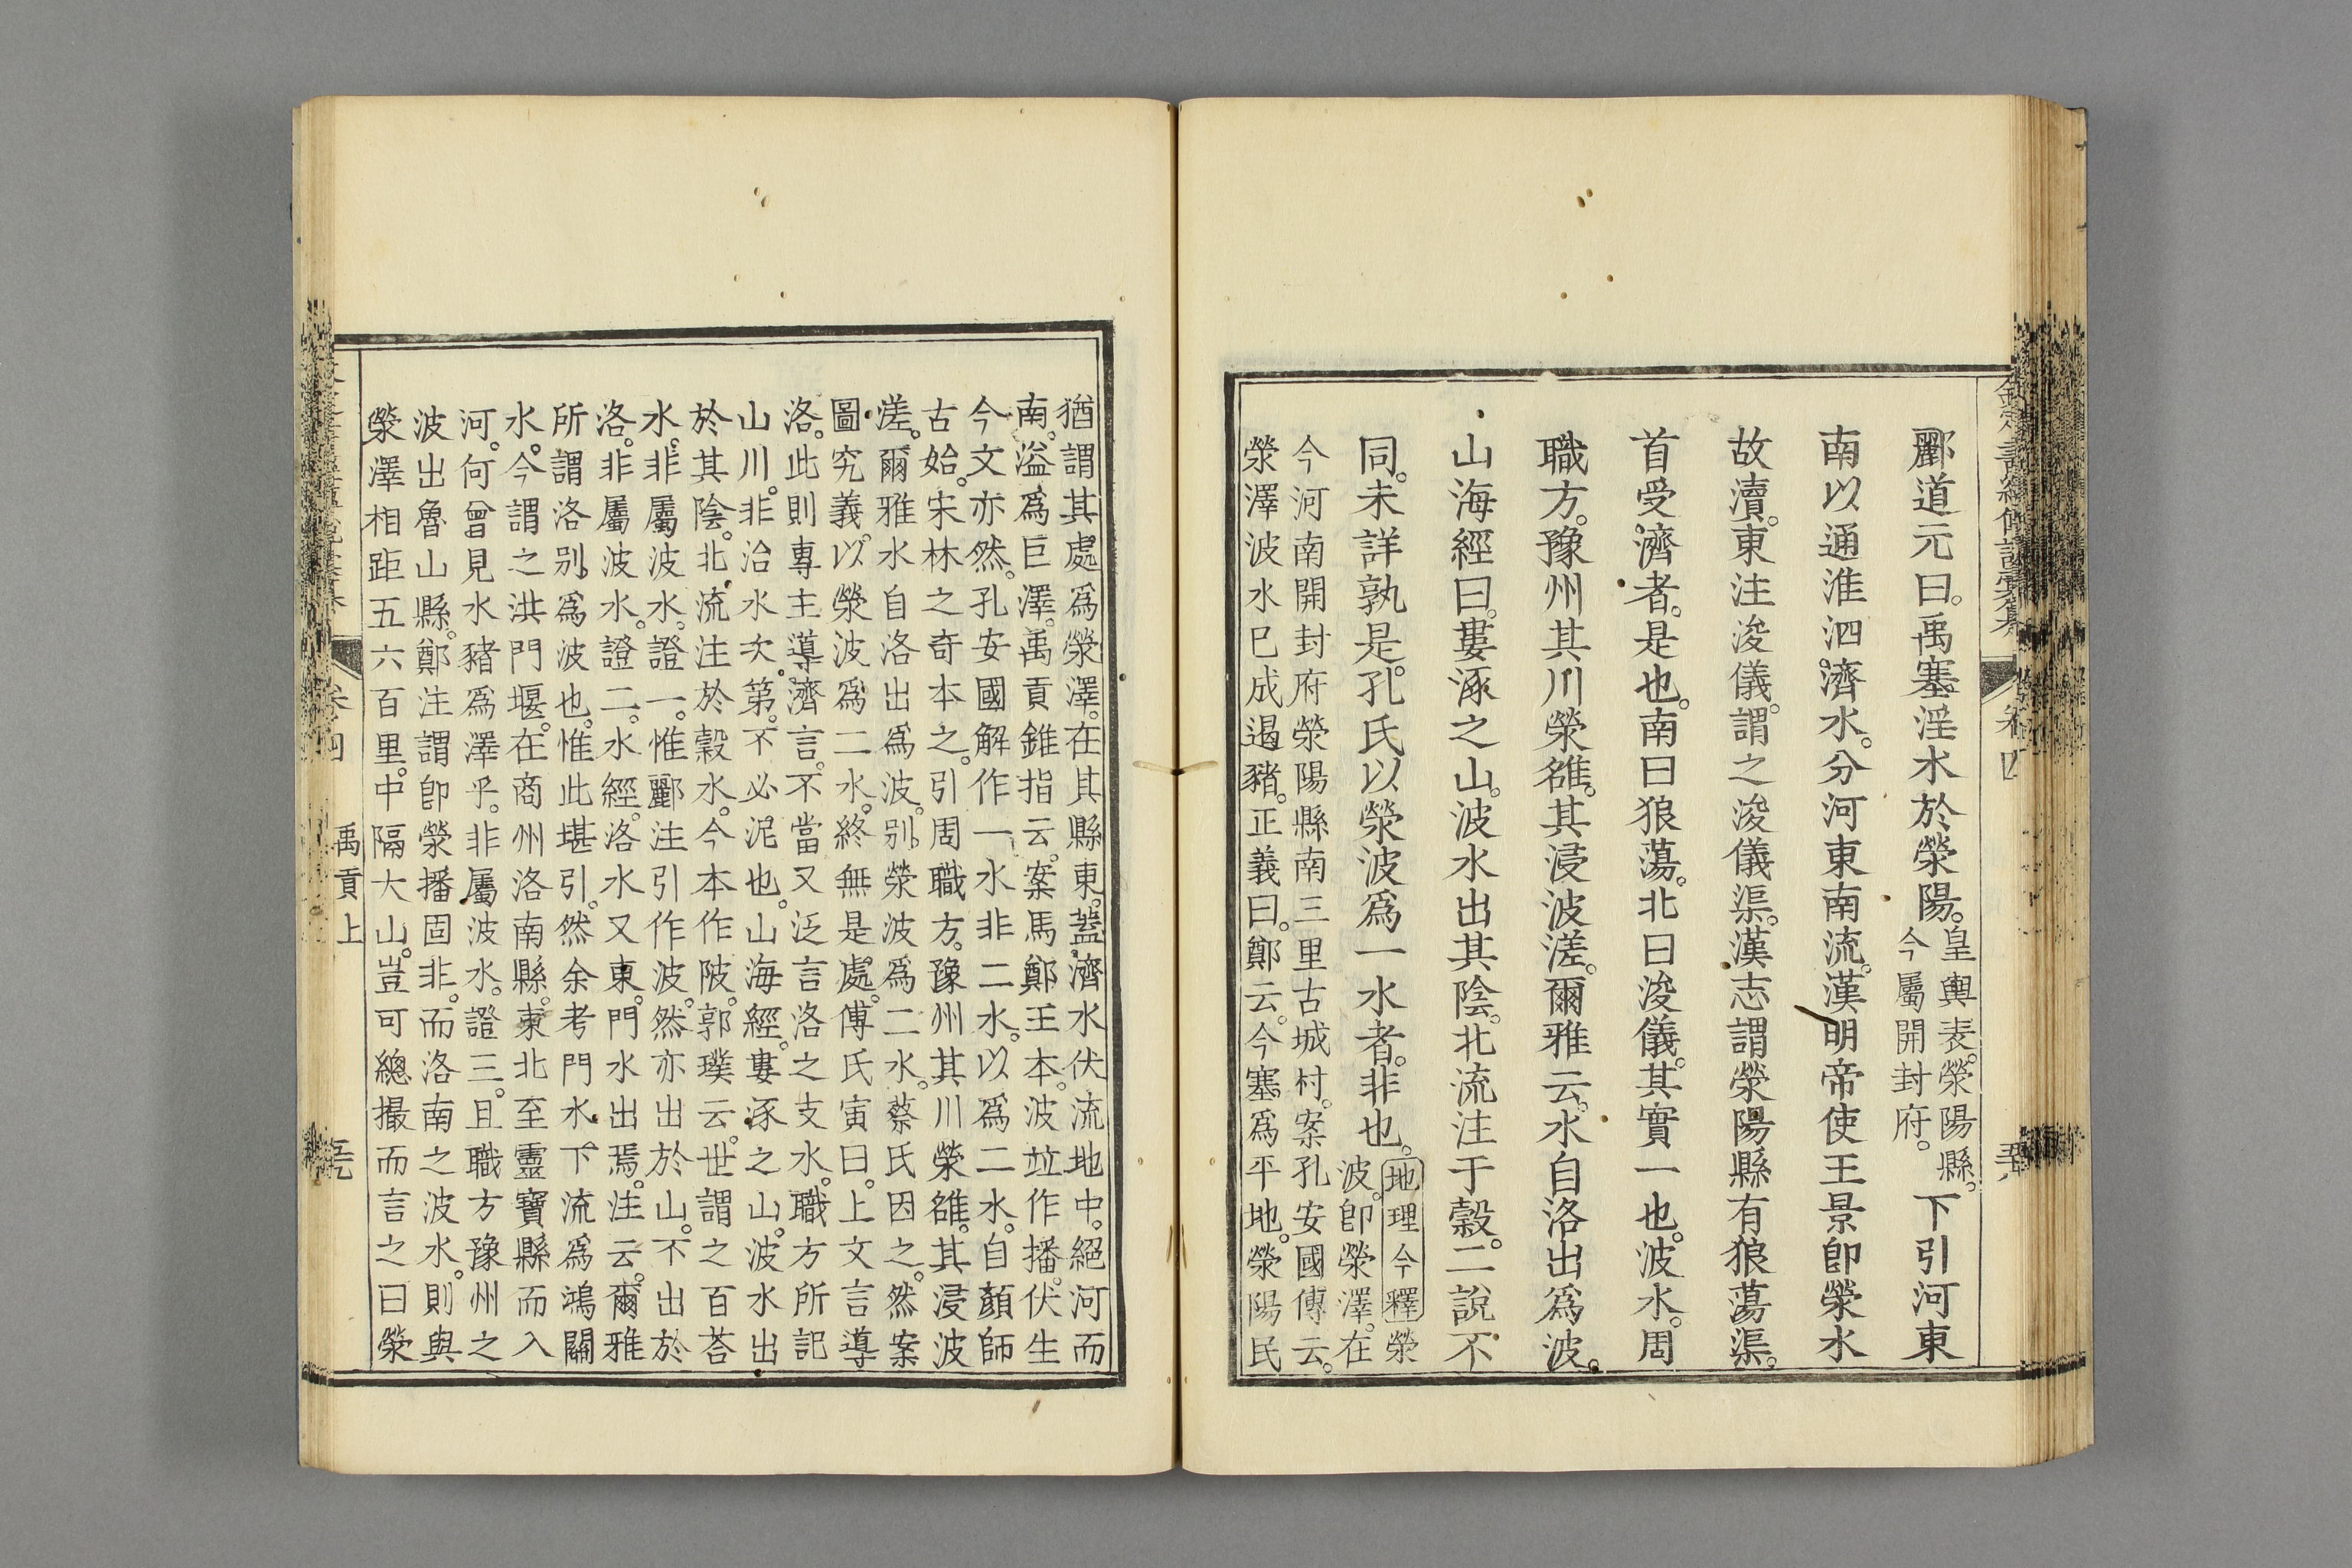 酈道元曰。禹塞淫水於滎陽。皇輿表。滎陽縣。今屬開封府。下引河東
南以通淮泗。濟水。分河東南流。漢明帝使王景卽滎水
故瀆。東注浚儀。謂之浚儀渠。漢志謂滎陽縣有狼蕩渠。
首受濟者。是也。南曰狼蕩。北曰浚儀。其實一也。波水。周
職方。豫州其川滎雒。其浸波溠。爾雅云。水自洛出爲波。
山海經曰。婁涿之山。波水出其陰。北流注于穀。二說不
同。未詳孰是。孔氏以滎波爲一水者。非也。地理今釋滎
波。卽滎澤。在
今河南開封府滎陽縣南三里古城村。案孔安國傳云。
滎澤波水已成遏豬。正義曰。鄭云。今塞爲平地。滎陽民
猶謂其處爲滎澤。在其縣東。蓋濟水伏流地中。絕河而
南。溢爲巨澤。禹貢錐指云。案馬鄭王本。波竝作播。伏生
今文亦然。孔安國解作一水非二水。以爲二水。自顏師
古始。宋林之奇本之。引周職方。豫州其川滎雒。其浸波
溠。爾雅水自洛出爲波。別滎波爲二水。蔡氏因之。然案
圖究義。以滎波爲二水。終無是處。傅氏寅曰。上文言導
洛。此則專主導濟言。不當又泛言洛之支水。職方所記
山川。非治水次第。不必泥也。山海經。婁涿之山。波水出
於其陰。北流注於穀水。今本作陂。郭璞云。世謂之百荅
水。非屬波水。證一。惟酈注引作波。然亦出於山。不出於
洛。非屬波水。證二。水經。洛水又東。門水出焉。注云。爾雅
所謂洛別爲波也。惟此堪引。然余考門水下流爲鴻關
水。今謂之洪門堰。在商州洛南縣。東北至靈寶縣而入
河。何曾見水豬爲澤乎。非屬波水。證三。且職方豫州之
波出魯山縣。鄭注謂卽滎播固非。而洛南之波水。則與
滎澤相距五六百里。中隔大山。豈可總撮而言之曰滎
卷四
禹貢上